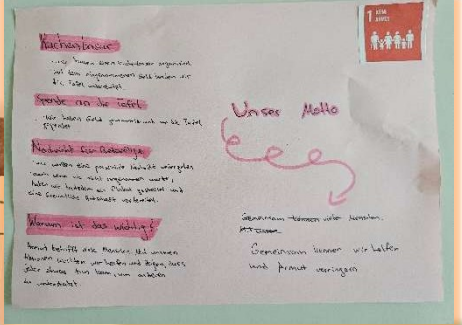 Kuchenbasar
... wir haben einen Kuchenbasar organisiert
mit dem eingenommenen Geld haben wir
die Tafel unterstützt.
Spende an die Tafel
- Wir haben Geld gesammelt und an die Tafel
gespendet
Nachricht für
- wir wollten eine Nachricht weitergeben
auch wenn sie nicht angenommen wurde,
haben wir trotzdem ein Plakat gestaltet und
eine Botschaft verbreitet.
Warum ist das wichtig?
Armut betrifft viele Menschen. Mit unseren
Aktionen wollten wir helfen und zeigen, dass
jeder etwas tun kann, um anderen
zu
1 KEINE
ARMUT
Unser Motto
Gemeinsam können
Gemeinsam können wir helfen
und Armut verringern